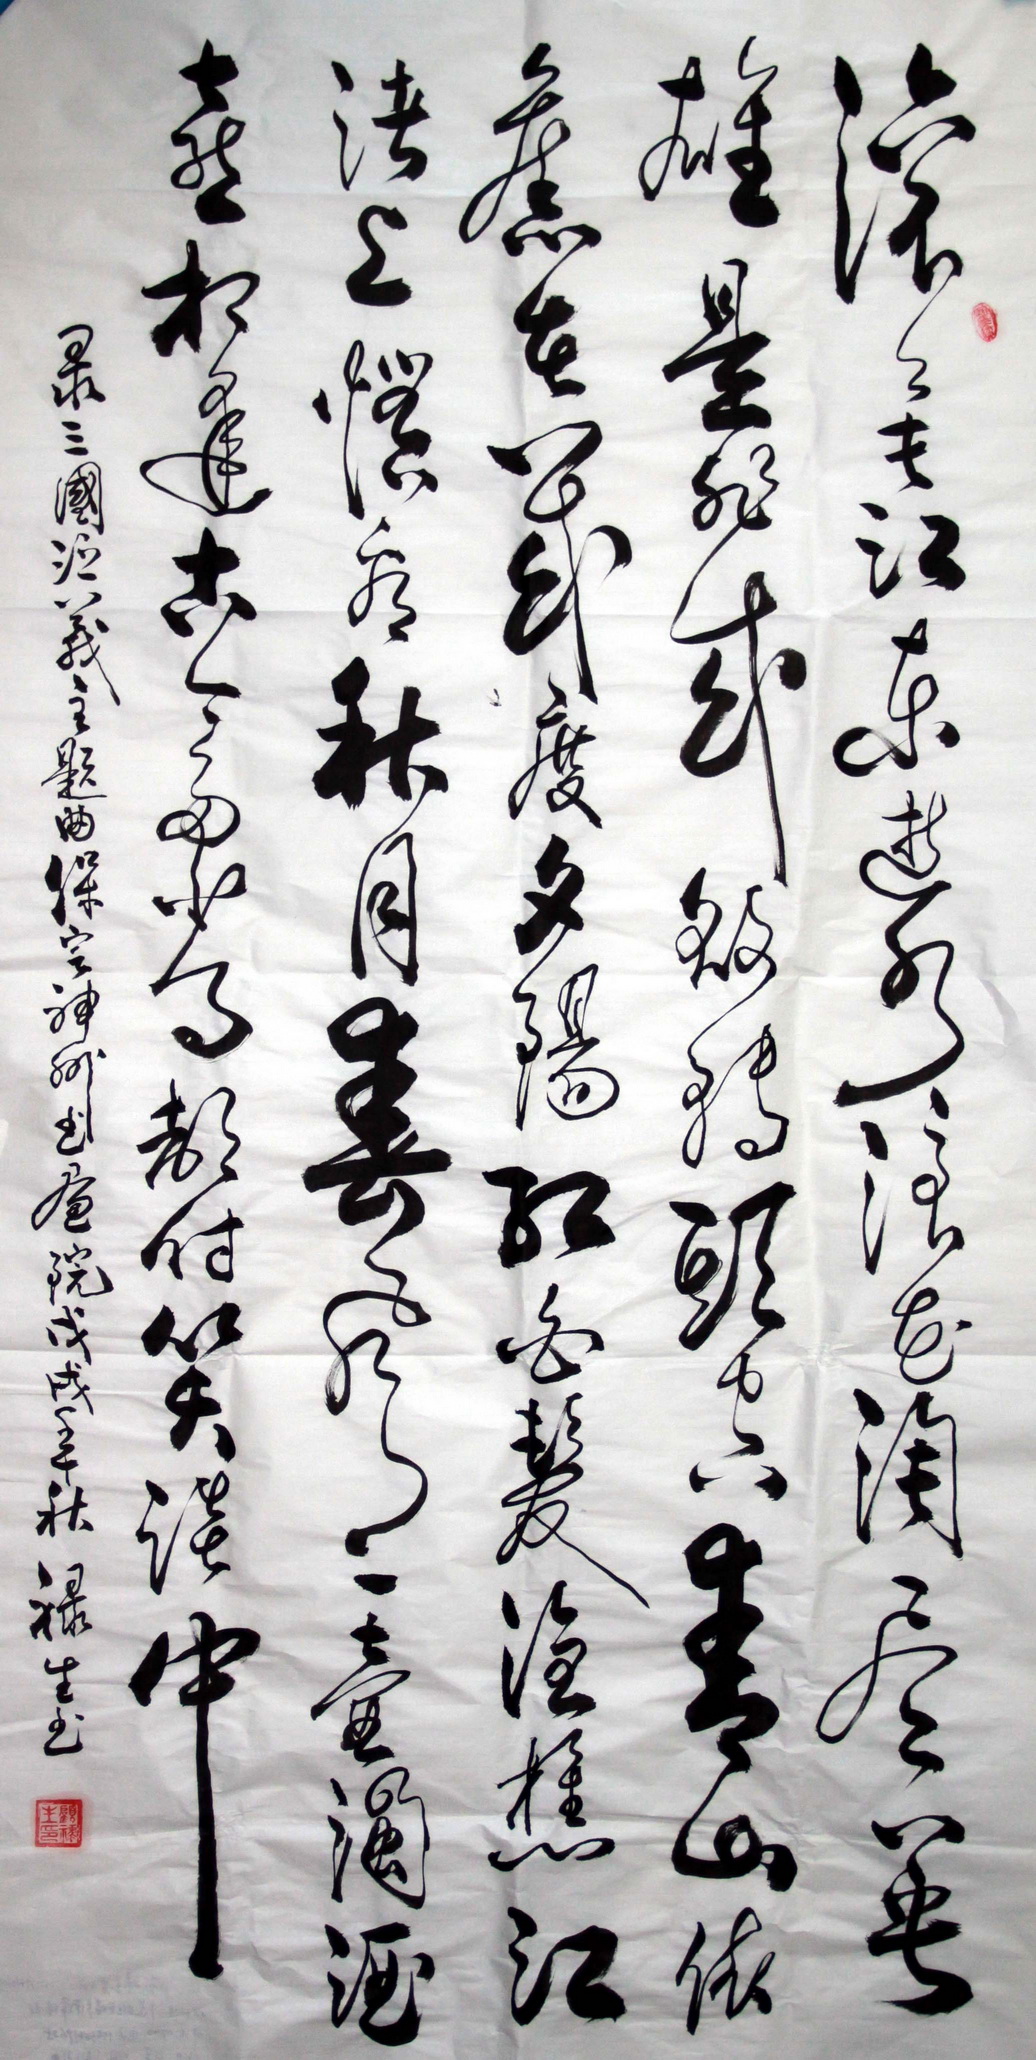 滚々长江东逝水浪花淘尽英
雄是非成敗转頭空青山依
舊在几度夕陽红白髮渔樵江
渚上惯看秋月春风一壶濁酒
喜相逢古今多少事都付笑谈中
录三國演義主題曲保定神州书画院戊戌年秋禄生书